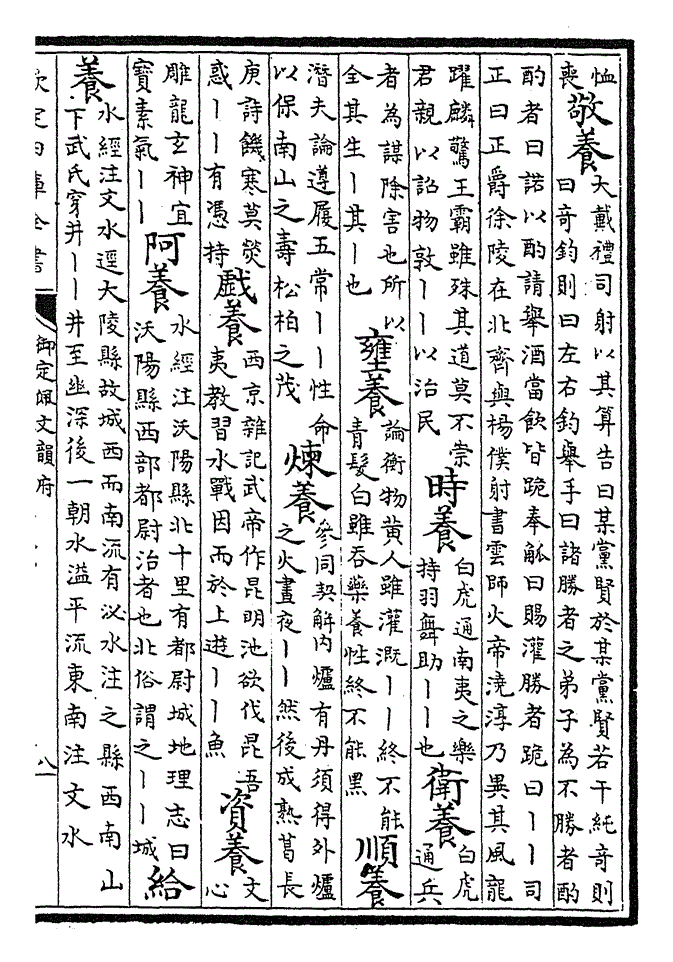 恤
喪
敬養
大戴禮司射以其算告曰某黨賢於某黨賢若干純奇則
曰奇鈞則曰左右鈞舉手曰諸勝者之弟子為不勝者酌
酌者曰諾以酌請舉酒當飲皆跪奉觚曰賜灌勝者跪曰丨丨司
正曰正爵徐陵在北齊與楊僕射書雲師火帝澆淳乃異其風龍
躍麟驚王霸雖殊其道莫不崇
君親以詔物敦丨丨以治民
時養
白虎通南夷之樂
持羽舞助丨丨也
衛養
白虎
通兵
者為謀除害也所以
全其生丨其丨也
壅養
論衡物黄人雖灌溉丨丨終不能
青髮白雖吞藥養性終不能黑
順養
潛夫論遵履五常丨丨性命
以保南山之壽松柏之茂
煉養
參同契解内爐有丹須得外爐
之火晝夜丨丨然後成熟葛長
庚詩饑寒莫熒
惑丨丨有憑持
戲養
西京雜記武帝作昆明池欲伐昆吾
夷教習水戰因而於上遊丨丨魚
資養
文
心
雕龍玄神宜
寶素氣丨丨
阿養
水經注沃陽縣北十里有都尉城地理志曰
沃陽縣西部都尉治者也北俗謂之丨丨城
給
養
水經注文水逕大陵縣故城西而南流有泌水注之縣西南山
下武氏穿井丨丨井至幽深後一朝水溢平流東南注文水
欽定四庫全書
御定佩文韻府
八